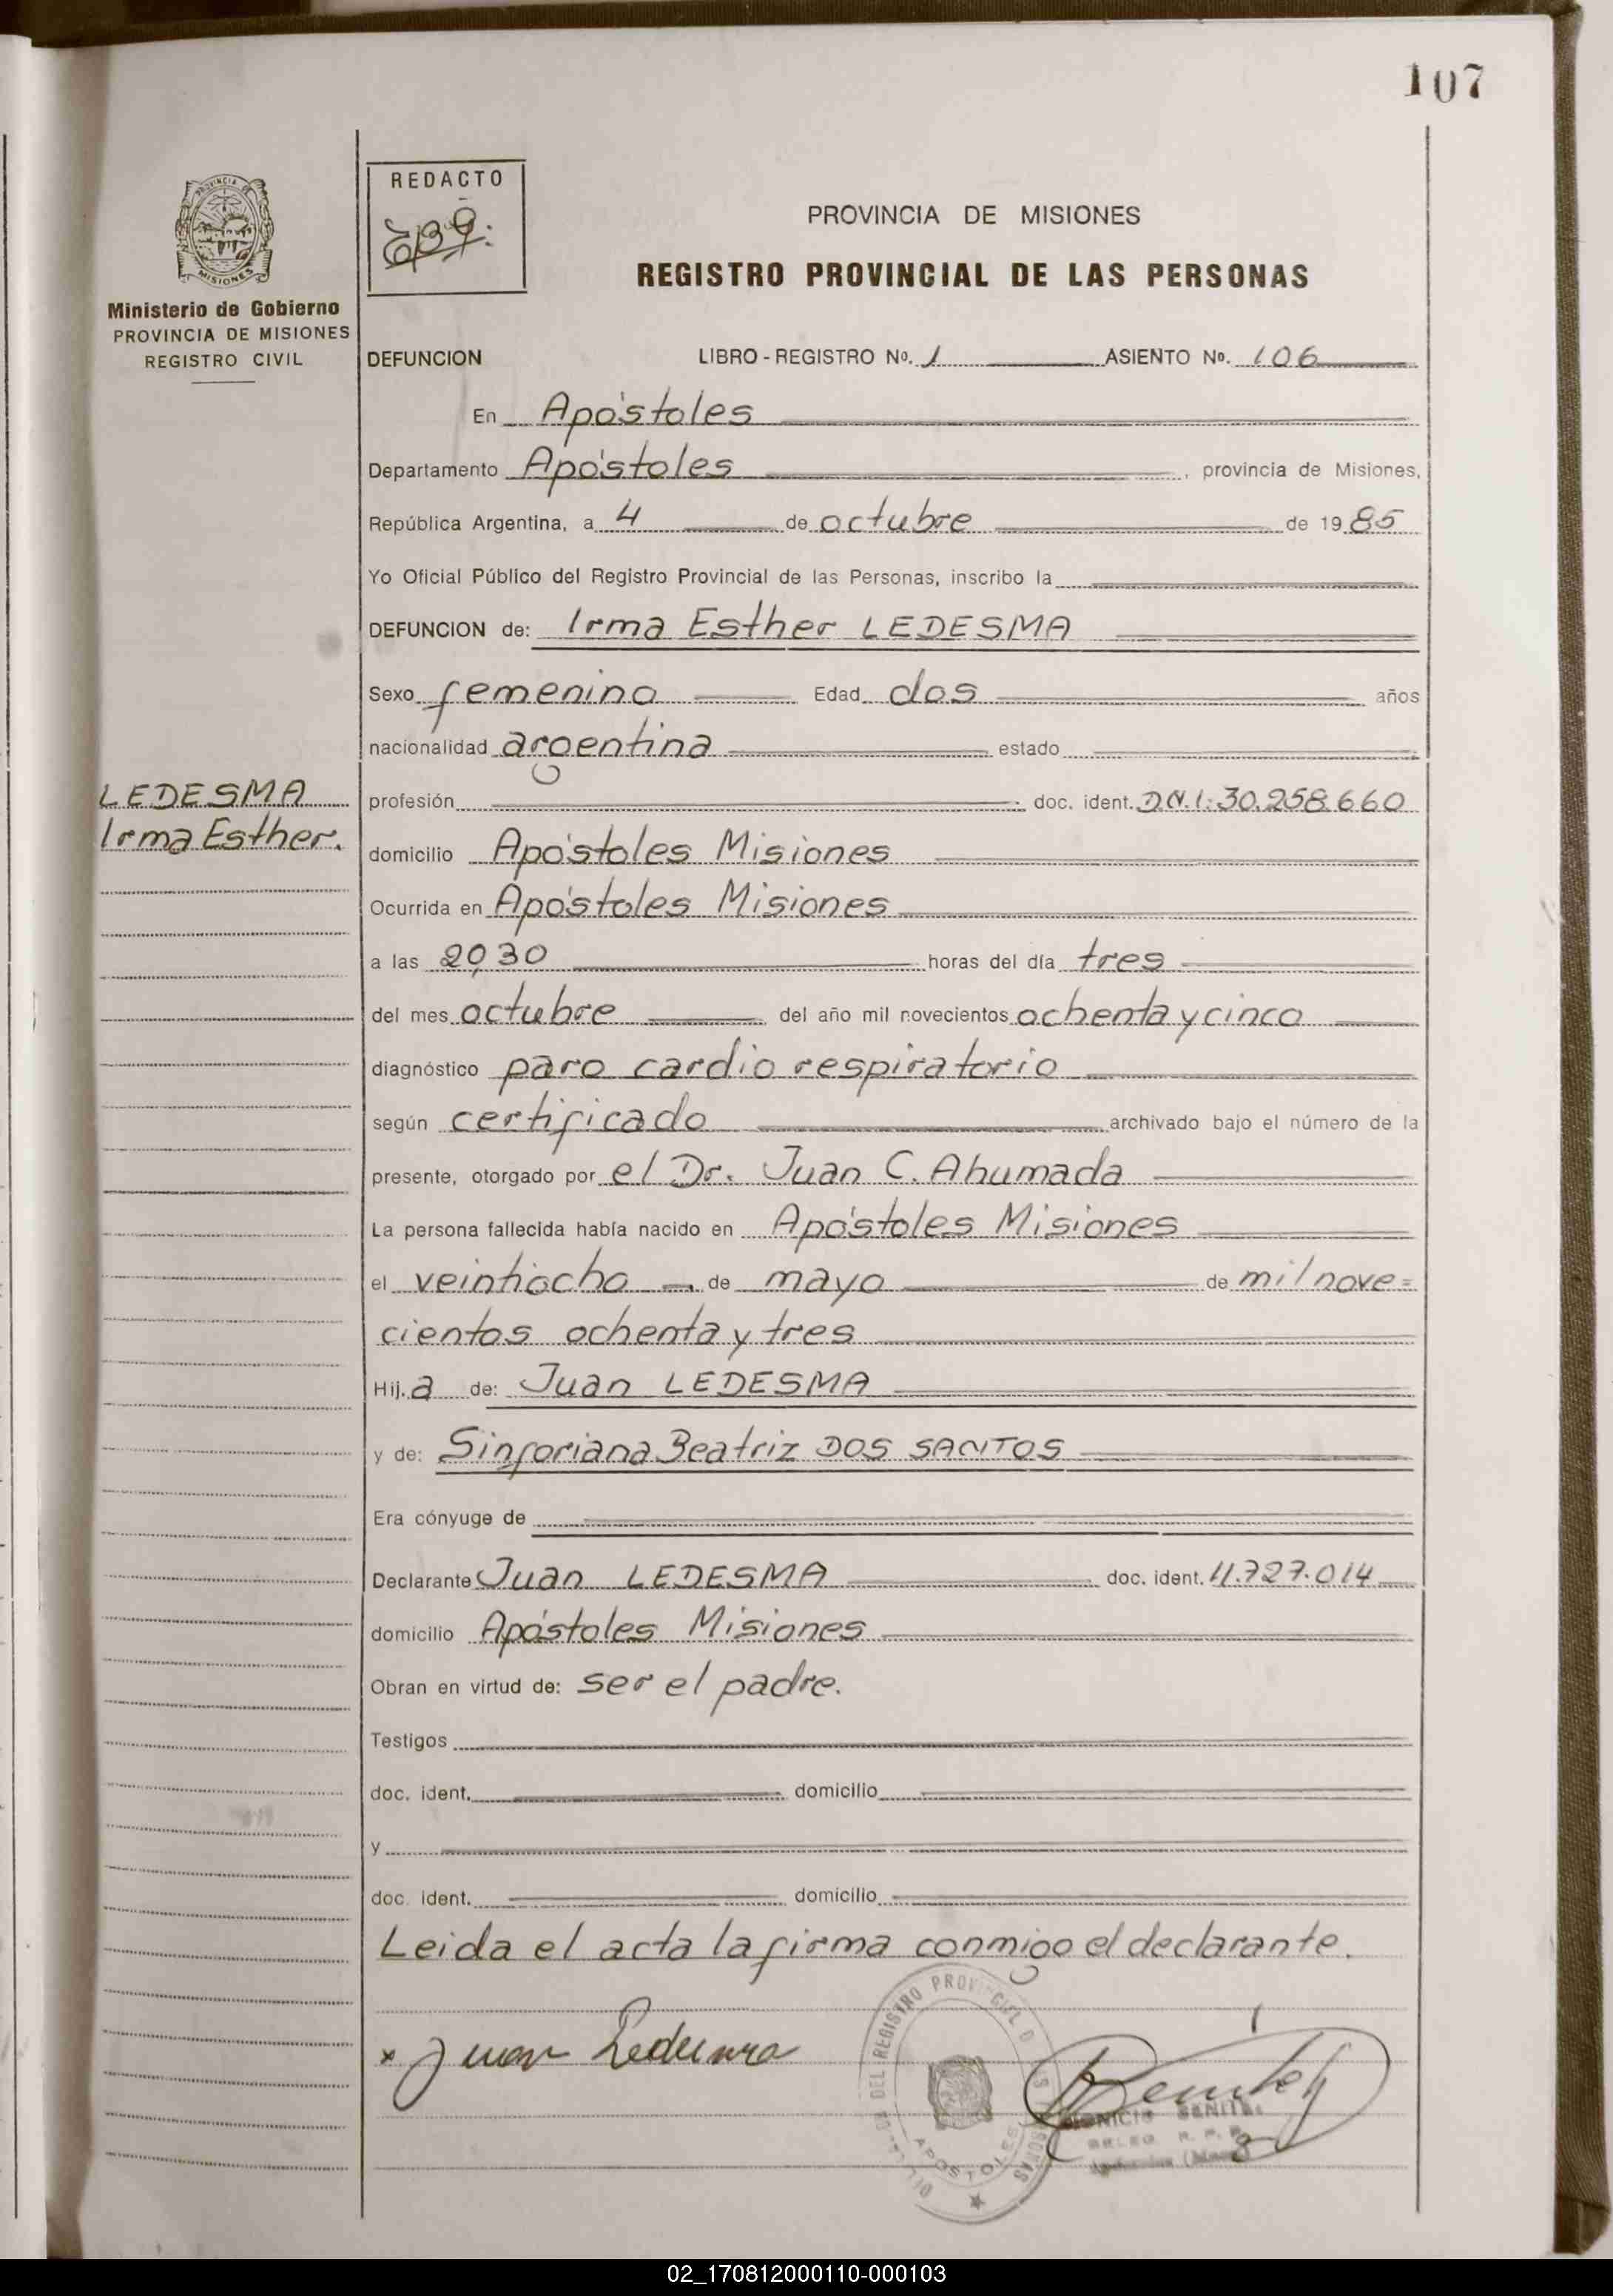 107
PROVINCIA DE
MISIONES
Ministerio de Gobierno
PROVINCIA DE MISIONES
REGISTRO CIVIL
REDACTO
PROVINCIA DE MISIONES
REGISTRO PROVINCIAL DE LAS PERSONAS
DEFUNCION LIBRO - REGISTRO Nº. 1 ASIENTO Nº. 106
En Apóstoles
Departamento Apóstoles, provincia de Misiones,
República Argentina, a 4 de octubre de 1985
Yo Oficial Público del Registro Provincial de las Personas, inscribo la
DEFUNCION de: Irma Esther LEDESMA
Sexo femenino Edad dos años
nacionalidad argentina estado
LEDESMA
Irma Esther.
profesión doc. ident. D.N.I: 30.258.660
domicilio Apóstoles Misiones
Ocurrida en Apóstoles Misiones
a las 20,30 horas del día tres
del mes octubre del año mil novecientos ochenta y cinco
diagnóstico paro cardio respiratorio
según certificado archivado bajo el número de la
presente, otorgado por el Dr. Juan C. Ahumada
La persona fallecida había nacido en Apóstoles Misiones
el veintiocho de mayo de mil nove=
cientos ochenta y tres
Hij.a de: Juan LEDESMA
y de: Sinforiana Beatriz DOS SANTOS
Era cónyuge de
Declarante Juan LEDESMA doc. ident. 11.727.014
domicilio Apóstoles Misiones
Obran en virtud de: ser el padre.
Testigos
doc. ident. domicilio
y
doc. ident. domicilio
Leida el acta la firma conmigo el declarante.
x Juan Ledesma
DEL REGISTRO PROVINCIAL DE LAS PERSONAS
APOSTOLES
DIONICIO BENITEZ
DELEG. R. P. P.
02_170812000110-000103